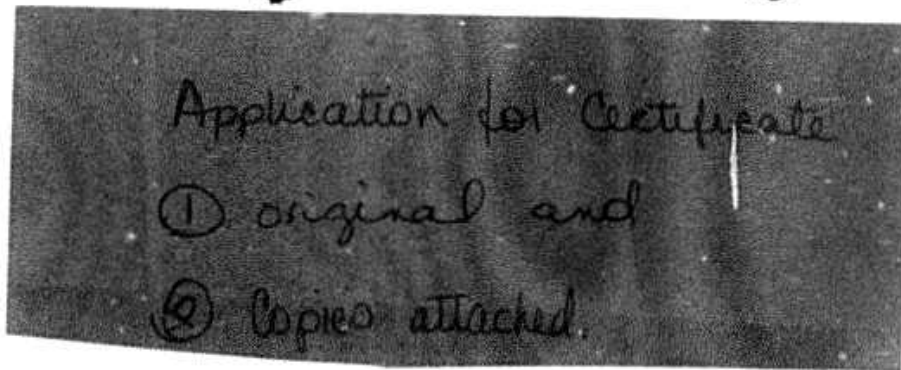 Application for Certificate
① original and
② Copies attached.